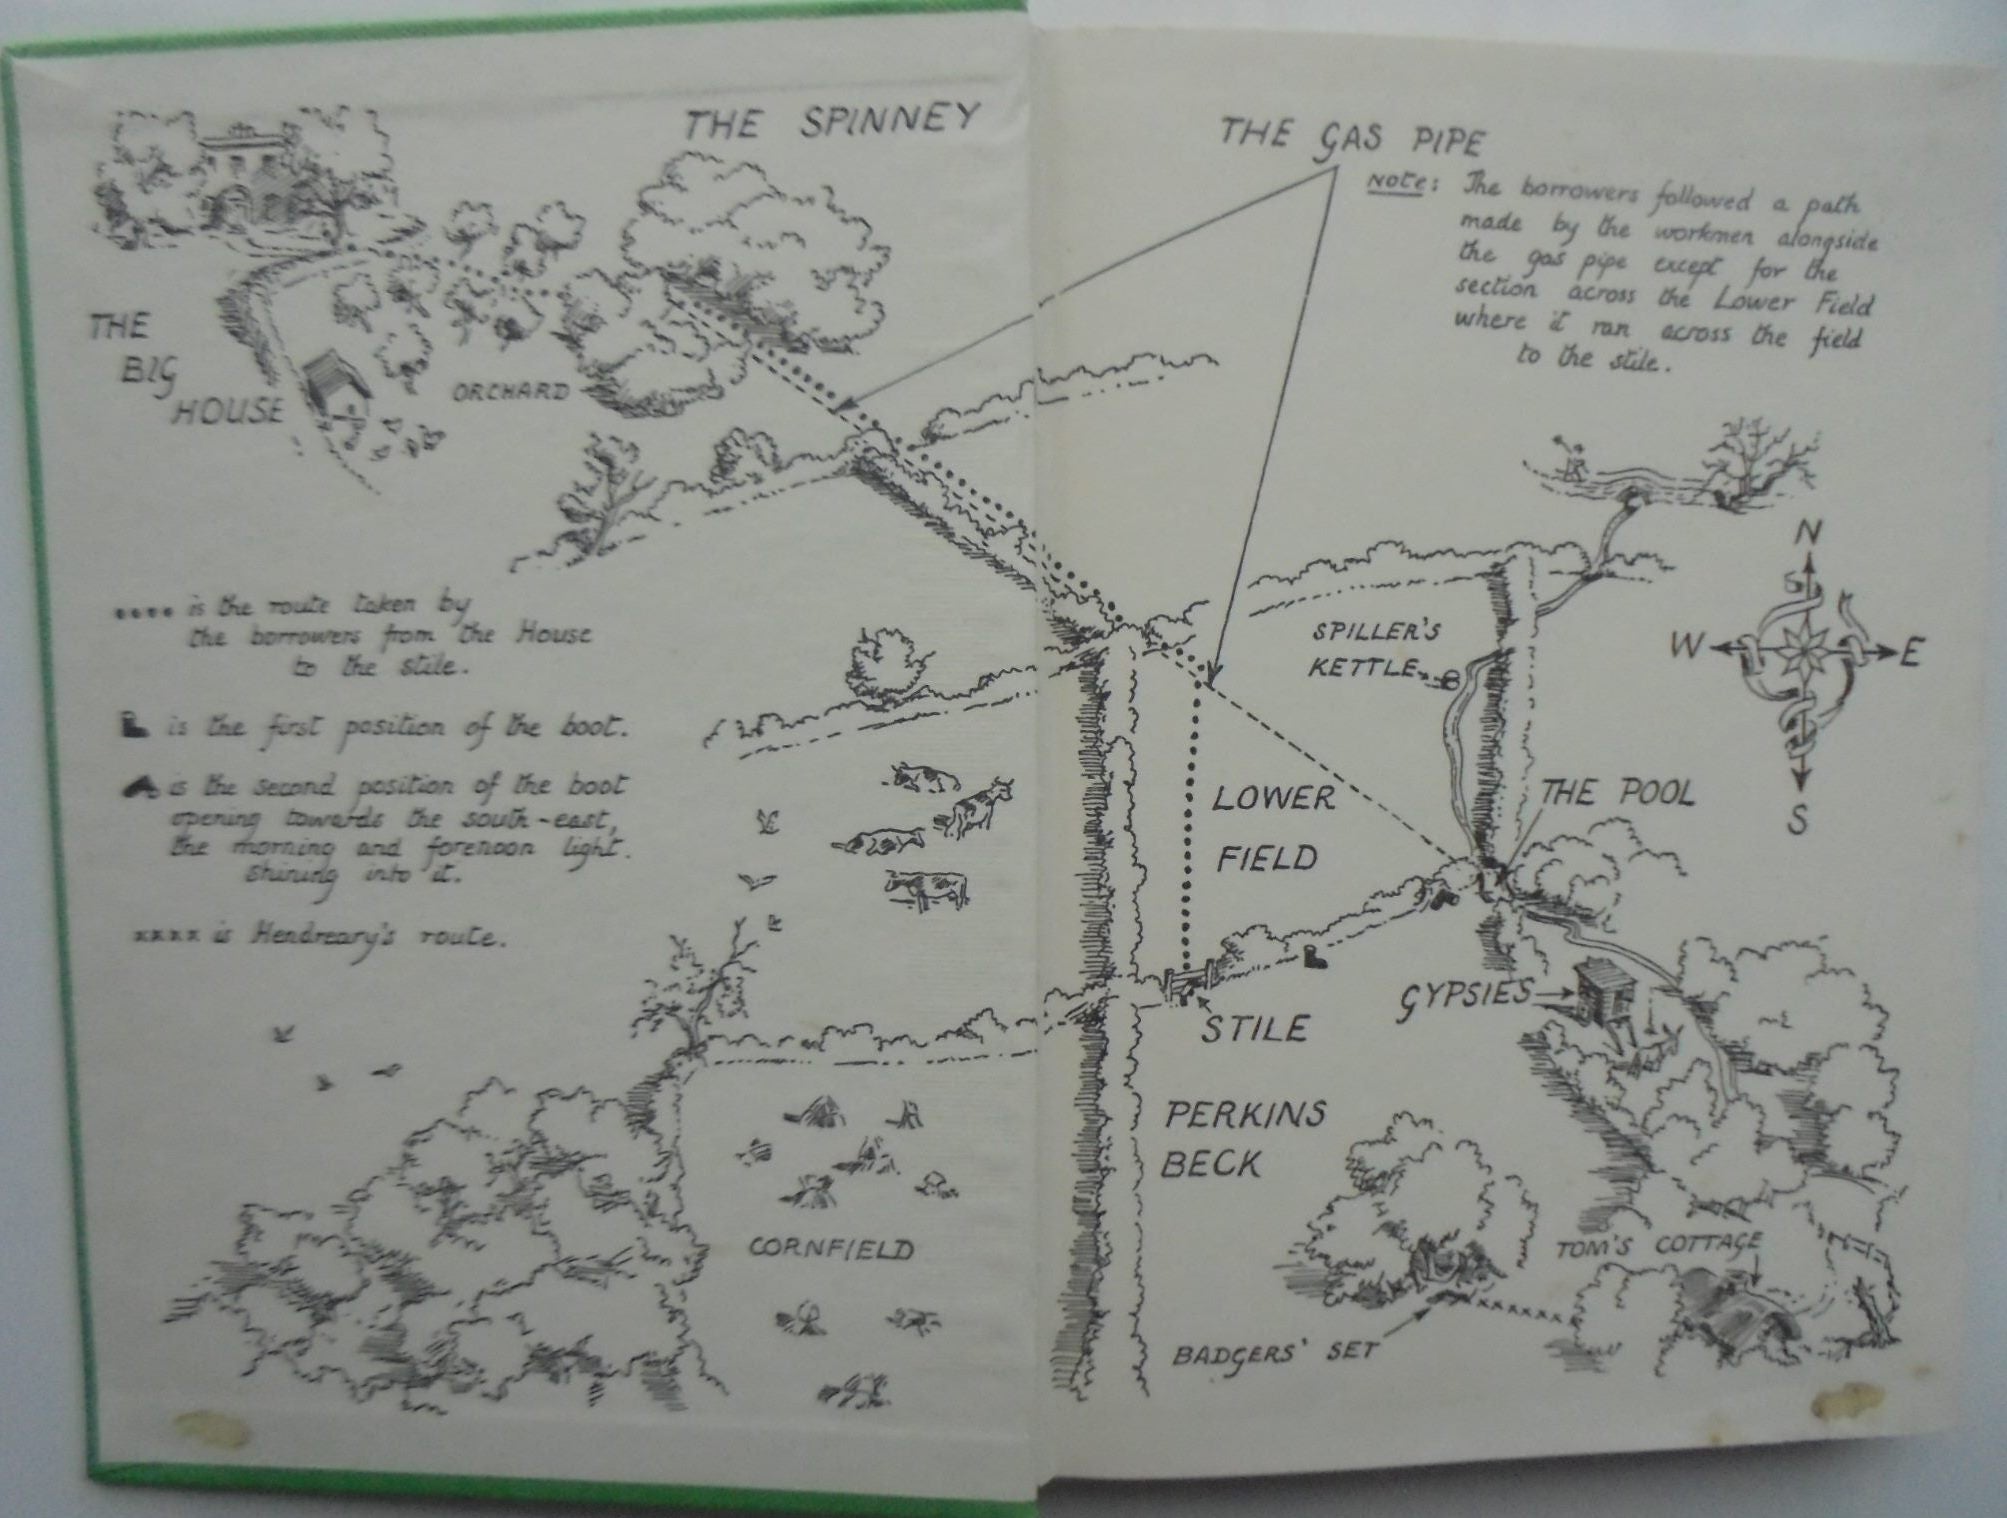 THE SPINNEY
THE
BIG
HOUSE
ORCHARD
.... is the route taken by
the borrowers from the House
to the stile.
is the first position of the boot.
is the second position of the boot
opening towards the south-east,
the morning and forenoon light.
shining into it.
xxxx is Hendreary's route.
CORNFIELD
THE GAS PIPE
NOTE: The borrowers followed a path
made by the workmen alongside
the gas pipe except for the
section across the Lower Field
where it ran across the field
to the stile.
N
W
E
S
SPILLER'S
KETTLE
THE POOL
LOWER
FIELD
GYPSIES
STILE
PERKINS
BECK
TOM'S COTTAGE
BADGERS' SET